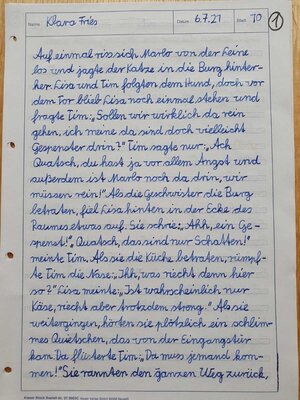 Name Klara Friés Datum 6.7.21 Blatt 10 1
Auf einmal riss sich Marlo von der Leine
los und jagte der Katze in die Burg hinter-
her. Lisa und Tim folgten dem Hund, doch vor
dem Tor blieb Lisa noch einmal stehen und
fragte Tim: „Sollen wir wirklich da rein
gehen, ich meine da sind doch vielleicht
Gespenster drin?" Tim sagte nur: „Ach
Quatsch, du hast ja vor allem Angst und
außerdem ist Marlo noch da drin, wir
müssen rein!" Als die Geschwister die Burg
betraten, fiel Lisa hinten in der Ecke des
Raumes etwas auf. Sie schrie: „Ahh, ein Ge-
spenst!" „Quatsch, das sind nur Schatten!"
meinte Tim. Als sie die Küche betraten, rümpf-
te Tim die Nase: „Ihh, was riecht denn hier
so?" Lisa meinte: „Ist wahrscheinlich nur
Käse, riecht aber trotzdem streng." Als sie
weitergingen, hörten sie plötzlich ein schlim-
mes Quietschen, das von der Eingangstür
kam. Da flüsterte Tim: „Da muss jemand kom-
men!" Sie rannten den ganzen Weg zurück,